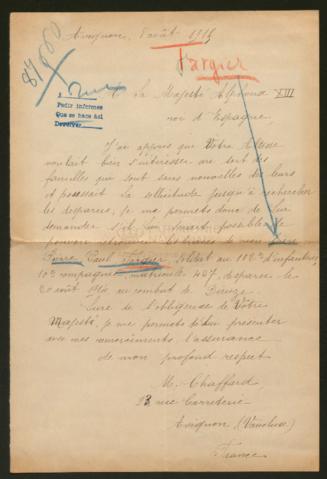 Avignon, 8 août 1915
Fargier
87960
Pedir informes
Que se hace así
Devolver
A Sa Majesté Alphonse XIII
roi d'Espagne,
J'ai appris que Votre Altesse
voulait bien s'intéresser au sort des
familles qui sont sans nouvelles des leurs
et poussait la sollicitude jusqu'à rechercher
les disparus, je me permets donc de lui
demander s'il lui serait possible de
de mon frère
Pierre Paul Fargier, soldat au 10e d'infanterie,
10e compagnie, matricule 437, disparu le
20 août 1914 au combat de Bieuze.
Sûre de l'obligeance de Votre
Majesté, je me permets de lui présenter
avec mes remerciements, l'assurance
de mon profond respect
M. Chaffard
23 rue Carreterie
Avignon (Vaucluse)
France